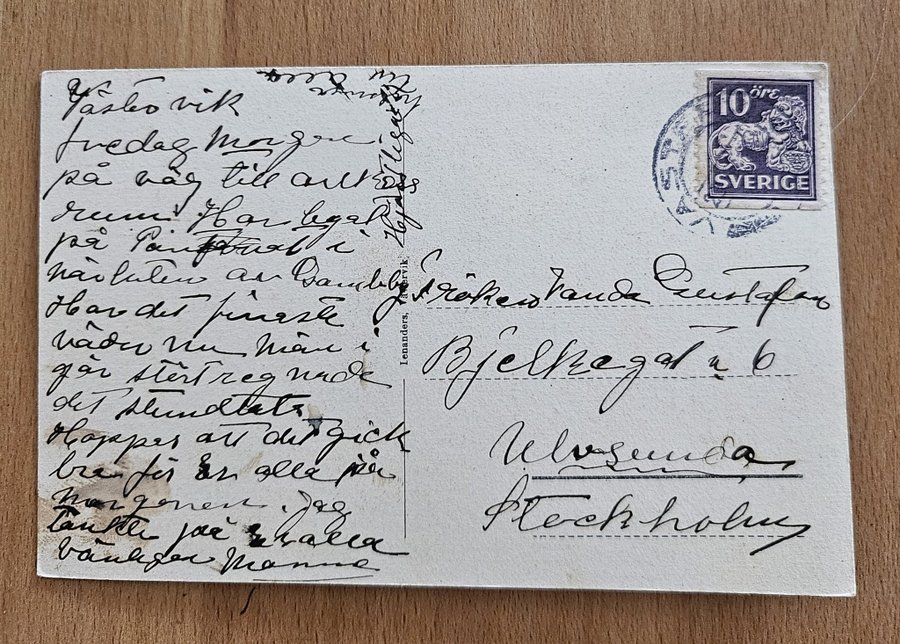 Västervik
fredag Morgon
på väg till
rum. Har legat
på i
närheten av Gamleby
Har det finaste
väder nu Men i
går störtregnade
det stundtals
Hoppas att det gick
bra för er alla på
morgonen. Jag
tänkte på er alla
vänligen Manne
Hjärtligast
Lenanders,
10 öre
SVERIGE
Fröken Vanda Gustafson
Bjelkegatan 6
Ulvsunda
Stockholm